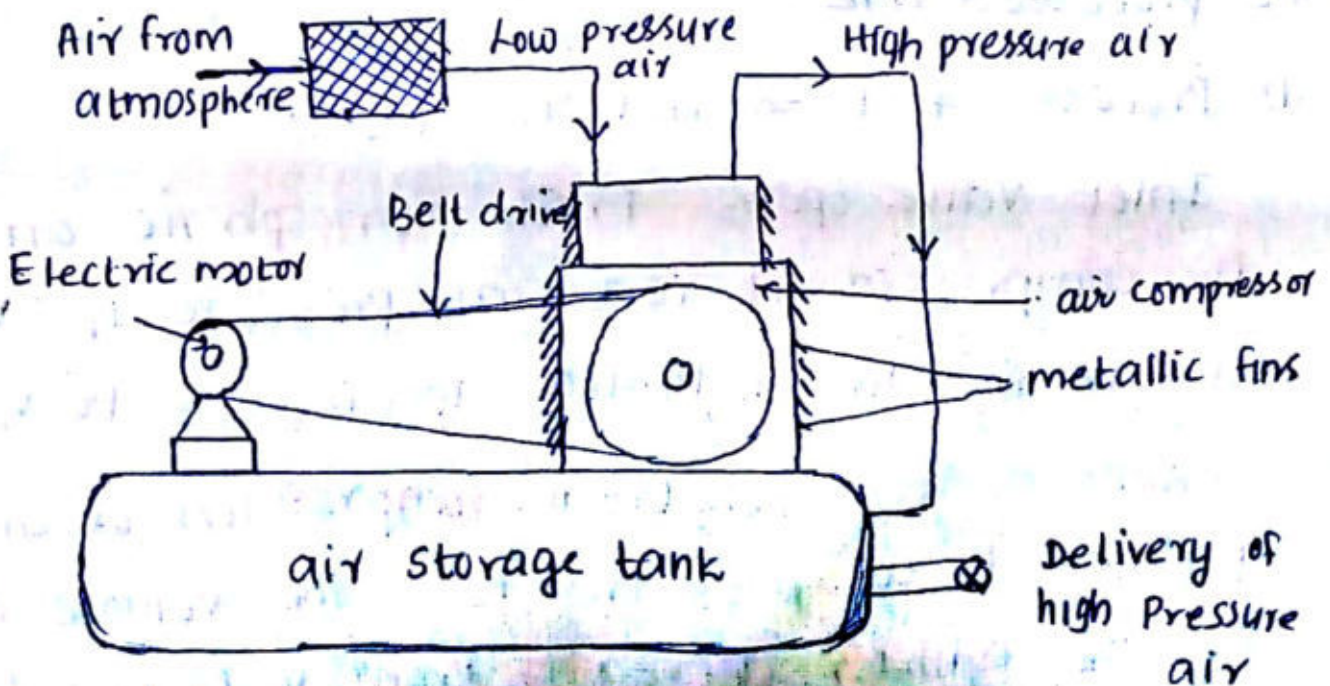 Air from
atmosphere
Low pressure
air
High pressure air
Belt drive
Electric motor
air compressor
metallic fins
air storage tank
Delivery of
high Pressure
air